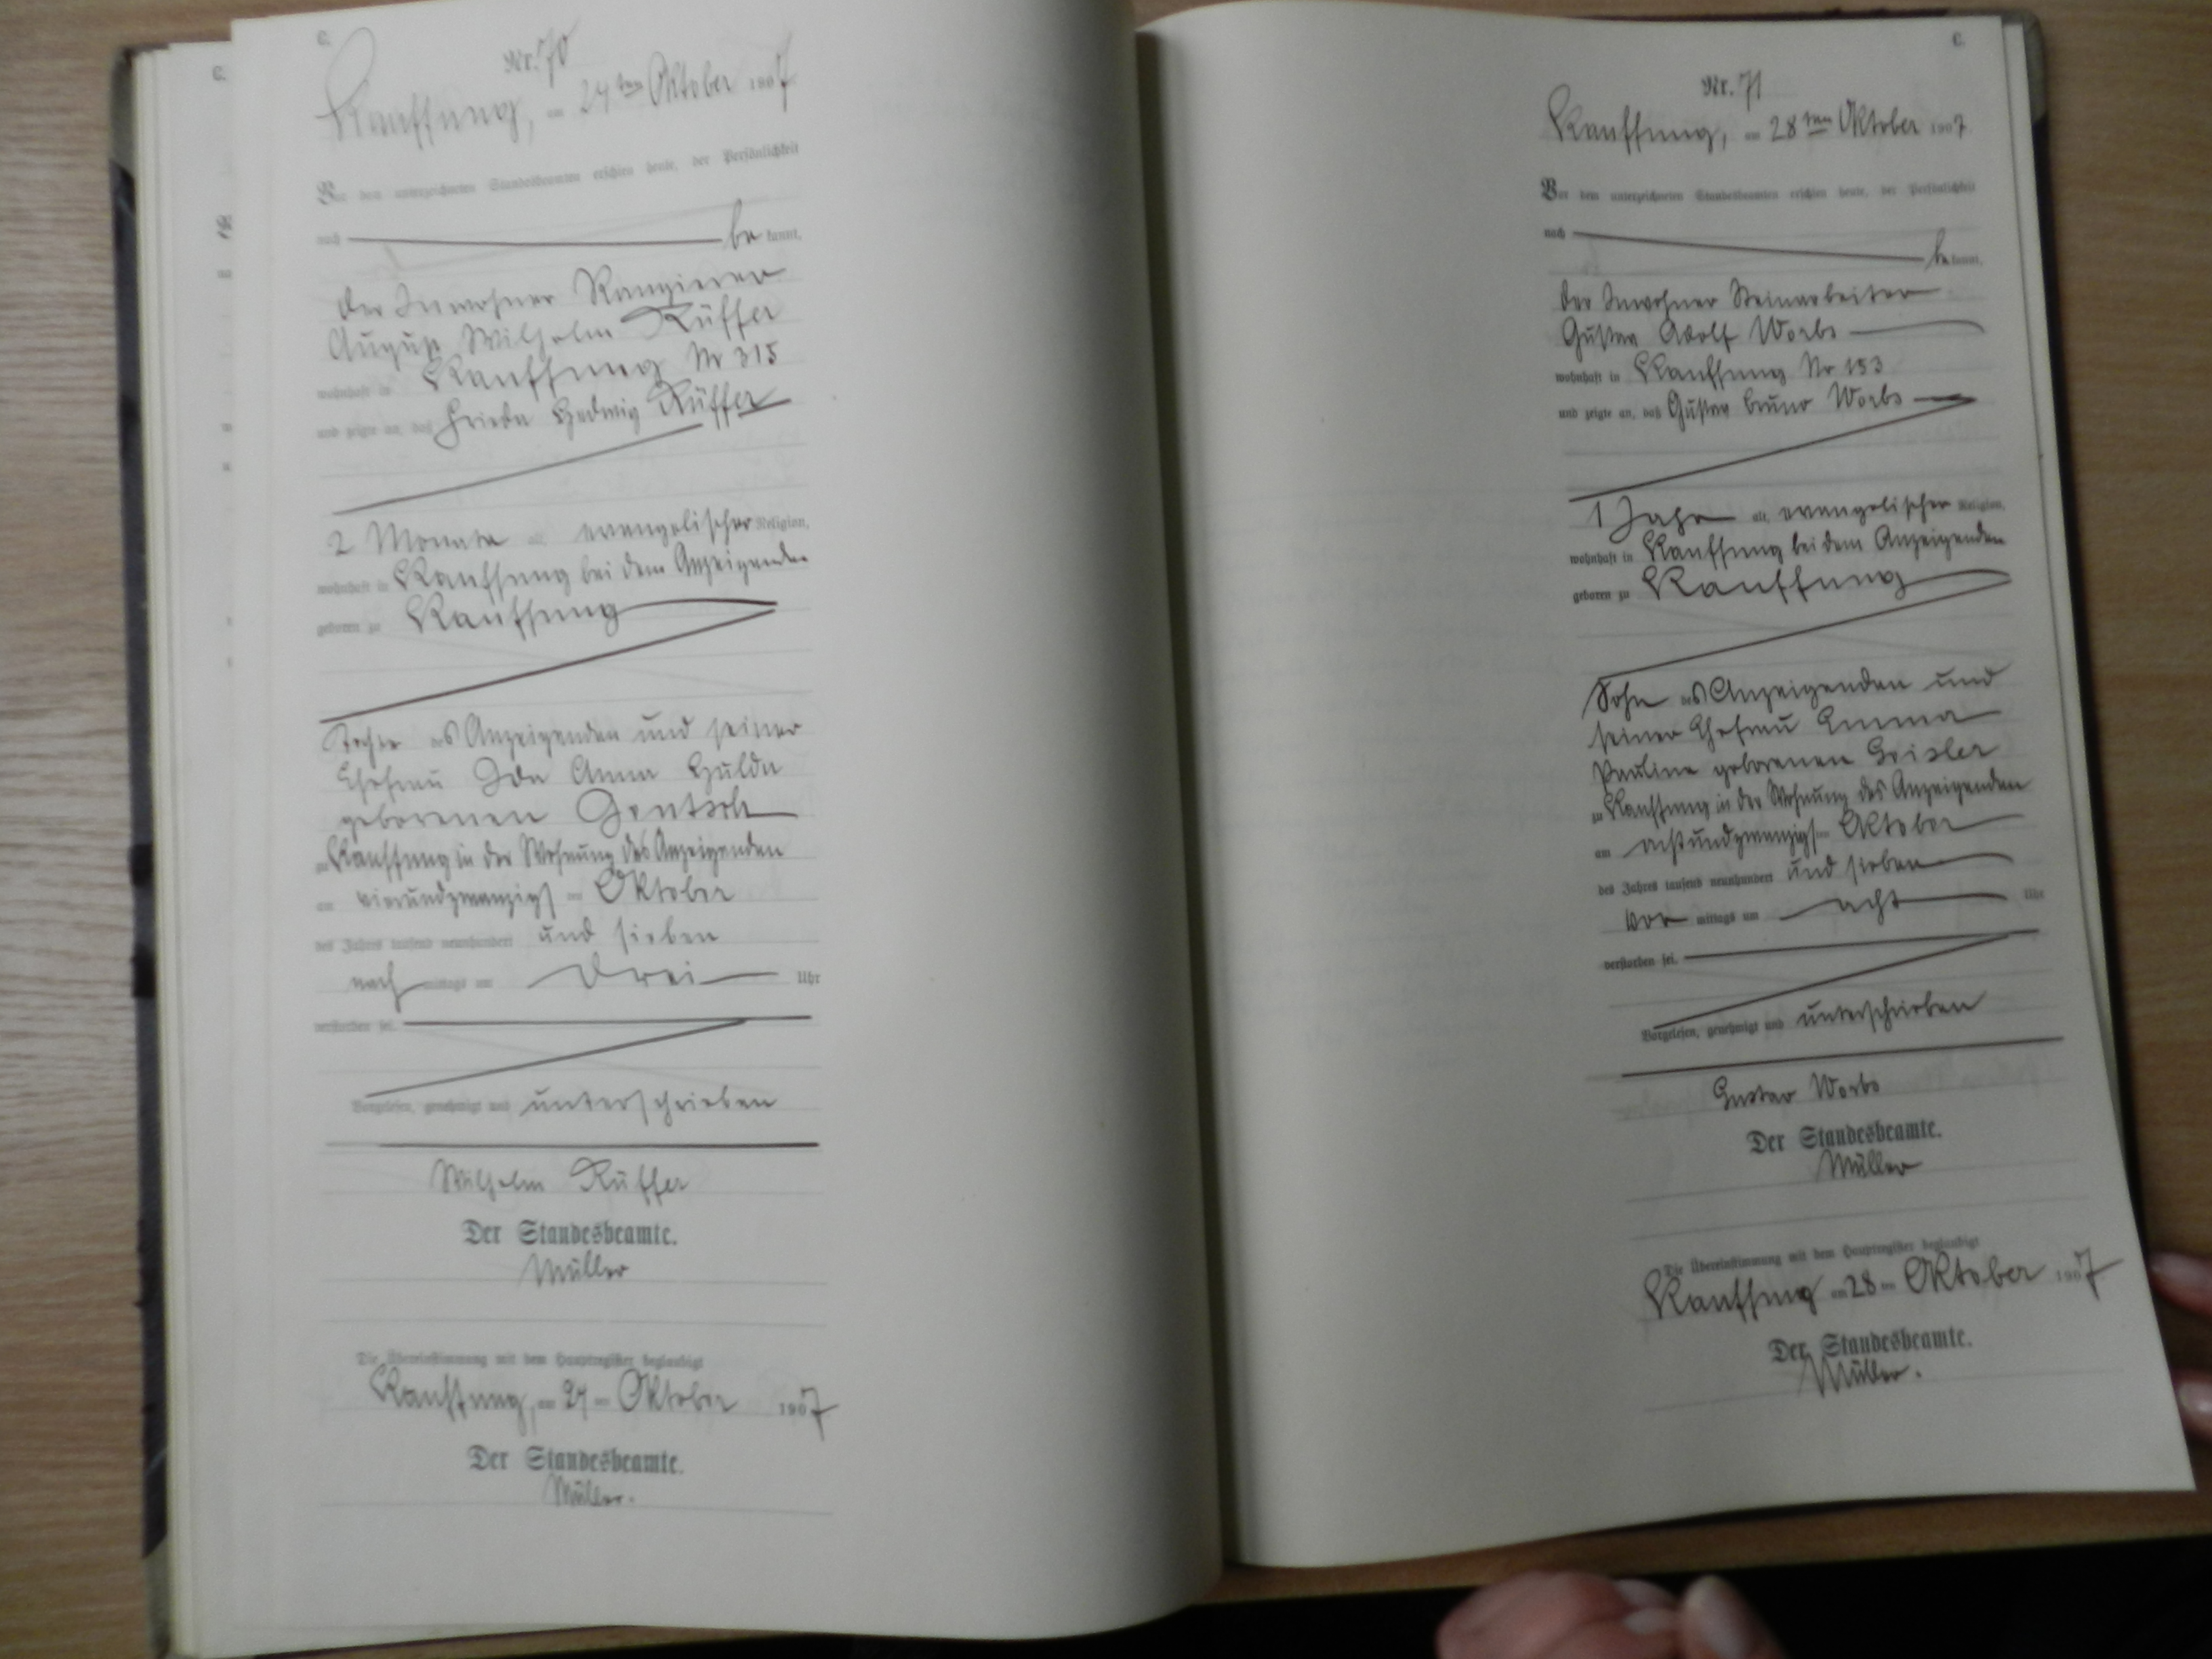 C.
Nr. 70
Kauffung, am 24ten Oktober 1907
Vor dem unterzeichneten Standesbeamten erschien heute, der Persönlichkeit
nach be kannt,
der Inwohner Rangierer
August Wilhelm Rüffer
wohnhaft in Kauffung Nr 315
und zeigte an, daß Frieda Hedwig Rüffer
2 Monate alt, evangelischer Religion,
wohnhaft in Kauffung bei dem Anzeigenden
geboren zu Kauffung
Tochter des Anzeigenden und seiner
Ehefrau Ida Anna Hulda
geborenen Gentsch
zu Kauffung in der Wohnung des Anzeigenden
am vierundzwanzigsten Oktober
des Jahres tausend neunhundert und sieben
nach mittags um drei Uhr
verstorben sei.
Vorgelesen, genehmigt und unterschrieben
Wilhelm Rüffer
Der Standesbeamte.
Müller
Die Übereinstimmung mit dem Hauptregister beglaubigt
Kauffung, am 24 ten Oktober 1907
Der Standesbeamte.
Müller.
C.
Nr. 71
Kauffung, am 28ten Oktober 1907
Vor dem unterzeichneten Standesbeamten erschien heute, der Persönlichkeit
nach be kannt,
der Inwohner Steinarbeiter
Gustav Adolf Worbs
wohnhaft in Kauffung Nr 153
und zeigte an, daß Gustav Bruno Worbs
1 Jahr alt, evangelischer Religion,
wohnhaft in Kauffung bei dem Anzeigenden
geboren zu Kauffung
Sohn des Anzeigenden und
seiner Ehefrau Emma
Pauline geborenen Geisler
zu Kauffung in der Wohnung des Anzeigenden
am achtundzwanzigsten Oktober
des Jahres tausend neunhundert und sieben
vor mittags um acht Uhr
verstorben sei.
Vorgelesen, genehmigt und unterschrieben
Gustav Worbs
Der Standesbeamte.
Müller
Die Übereinstimmung mit dem Hauptregister beglaubigt
Kauffung am 28 ten Oktober 1907
Der Standesbeamte.
Müller.